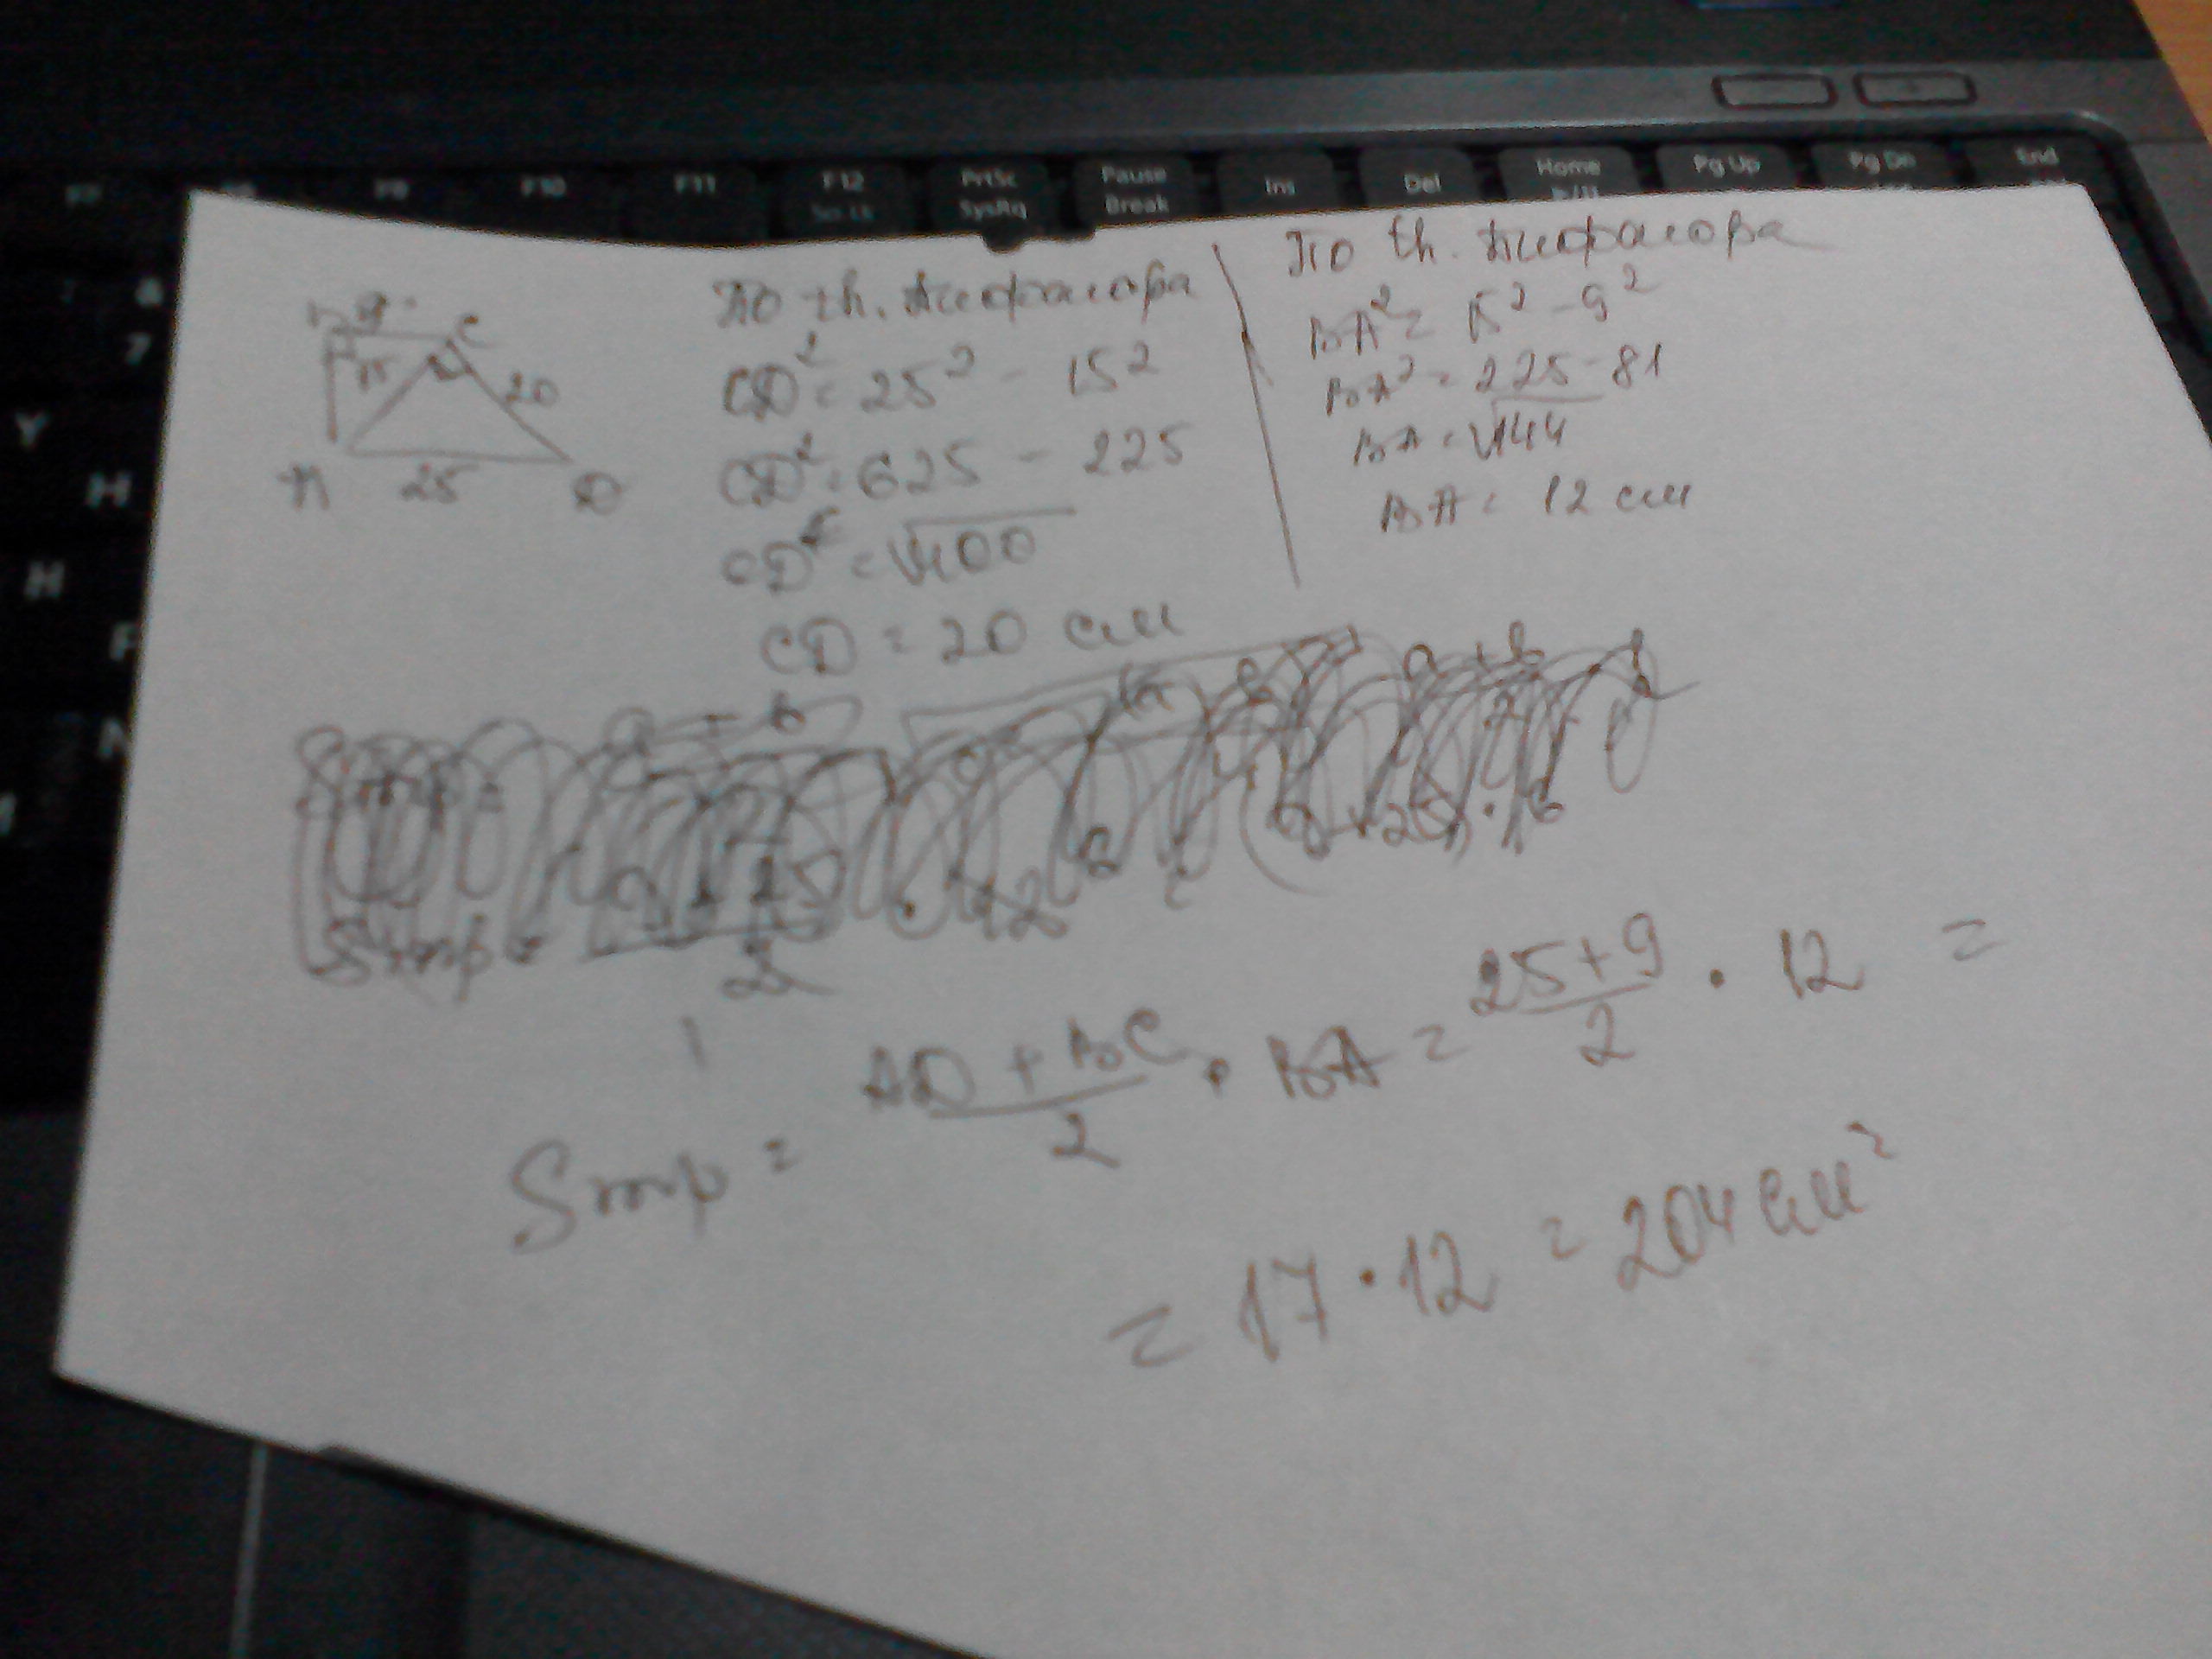 F9 F10 F11 F12 PrtSc Pause Ins Del Home Pg Up Pg Dn End
SysRq Break
8
7
Y
H
H
N
9 C
15 20
A 25 D
По th. Пифагора
CD² = 25² - 15²
CD² = 625 - 225
CD = √400
CD = 20 см
По th. Пифагора
BA² = 15² - 9²
BA² = 225 - 81
BA = √144
BA = 12 см
Sтр = AD + BC / 2 · BA = 25 + 9 / 2 · 12 =
= 17 · 12 = 204 см²